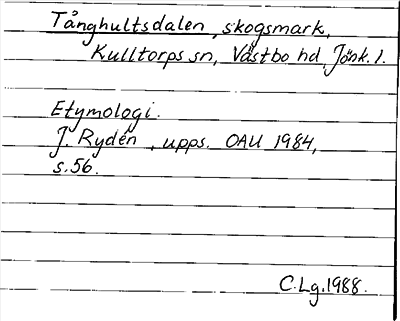 Tånghultsdalen, skogsmark,
Kulltorps sn, Västbo hd, Jönk. l.
Etymologi.
J. Rydén, upps. OAU 1984,
s. 56.
C.Lg. 1988.